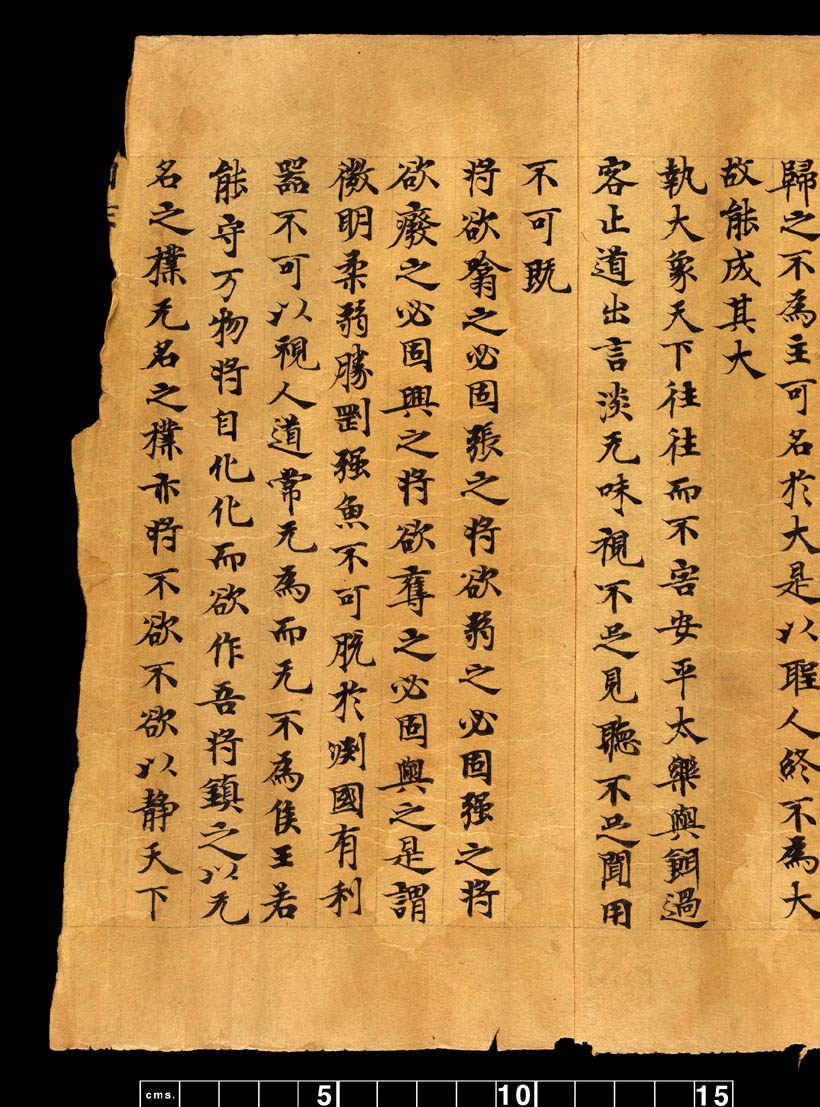 歸之不為主可名於大是以聖人終不為大
故能成其大
執大象天下往往而不害安平太樂與餌過
客止道出言淡无味視不足見聽不足聞用
不可既
将欲翕之必固張之将欲弱之必固强之将
欲廢之必固興之将欲奪之必固與之是謂
微明柔弱勝剛强魚不可脱於渕國有利
器不可以視人道常无為而无不為侯王若
能守万物将自化化而欲作吾将鎮之以无
名之樸无名之樸亦将不欲不欲以静天下
cms. 5 10 15